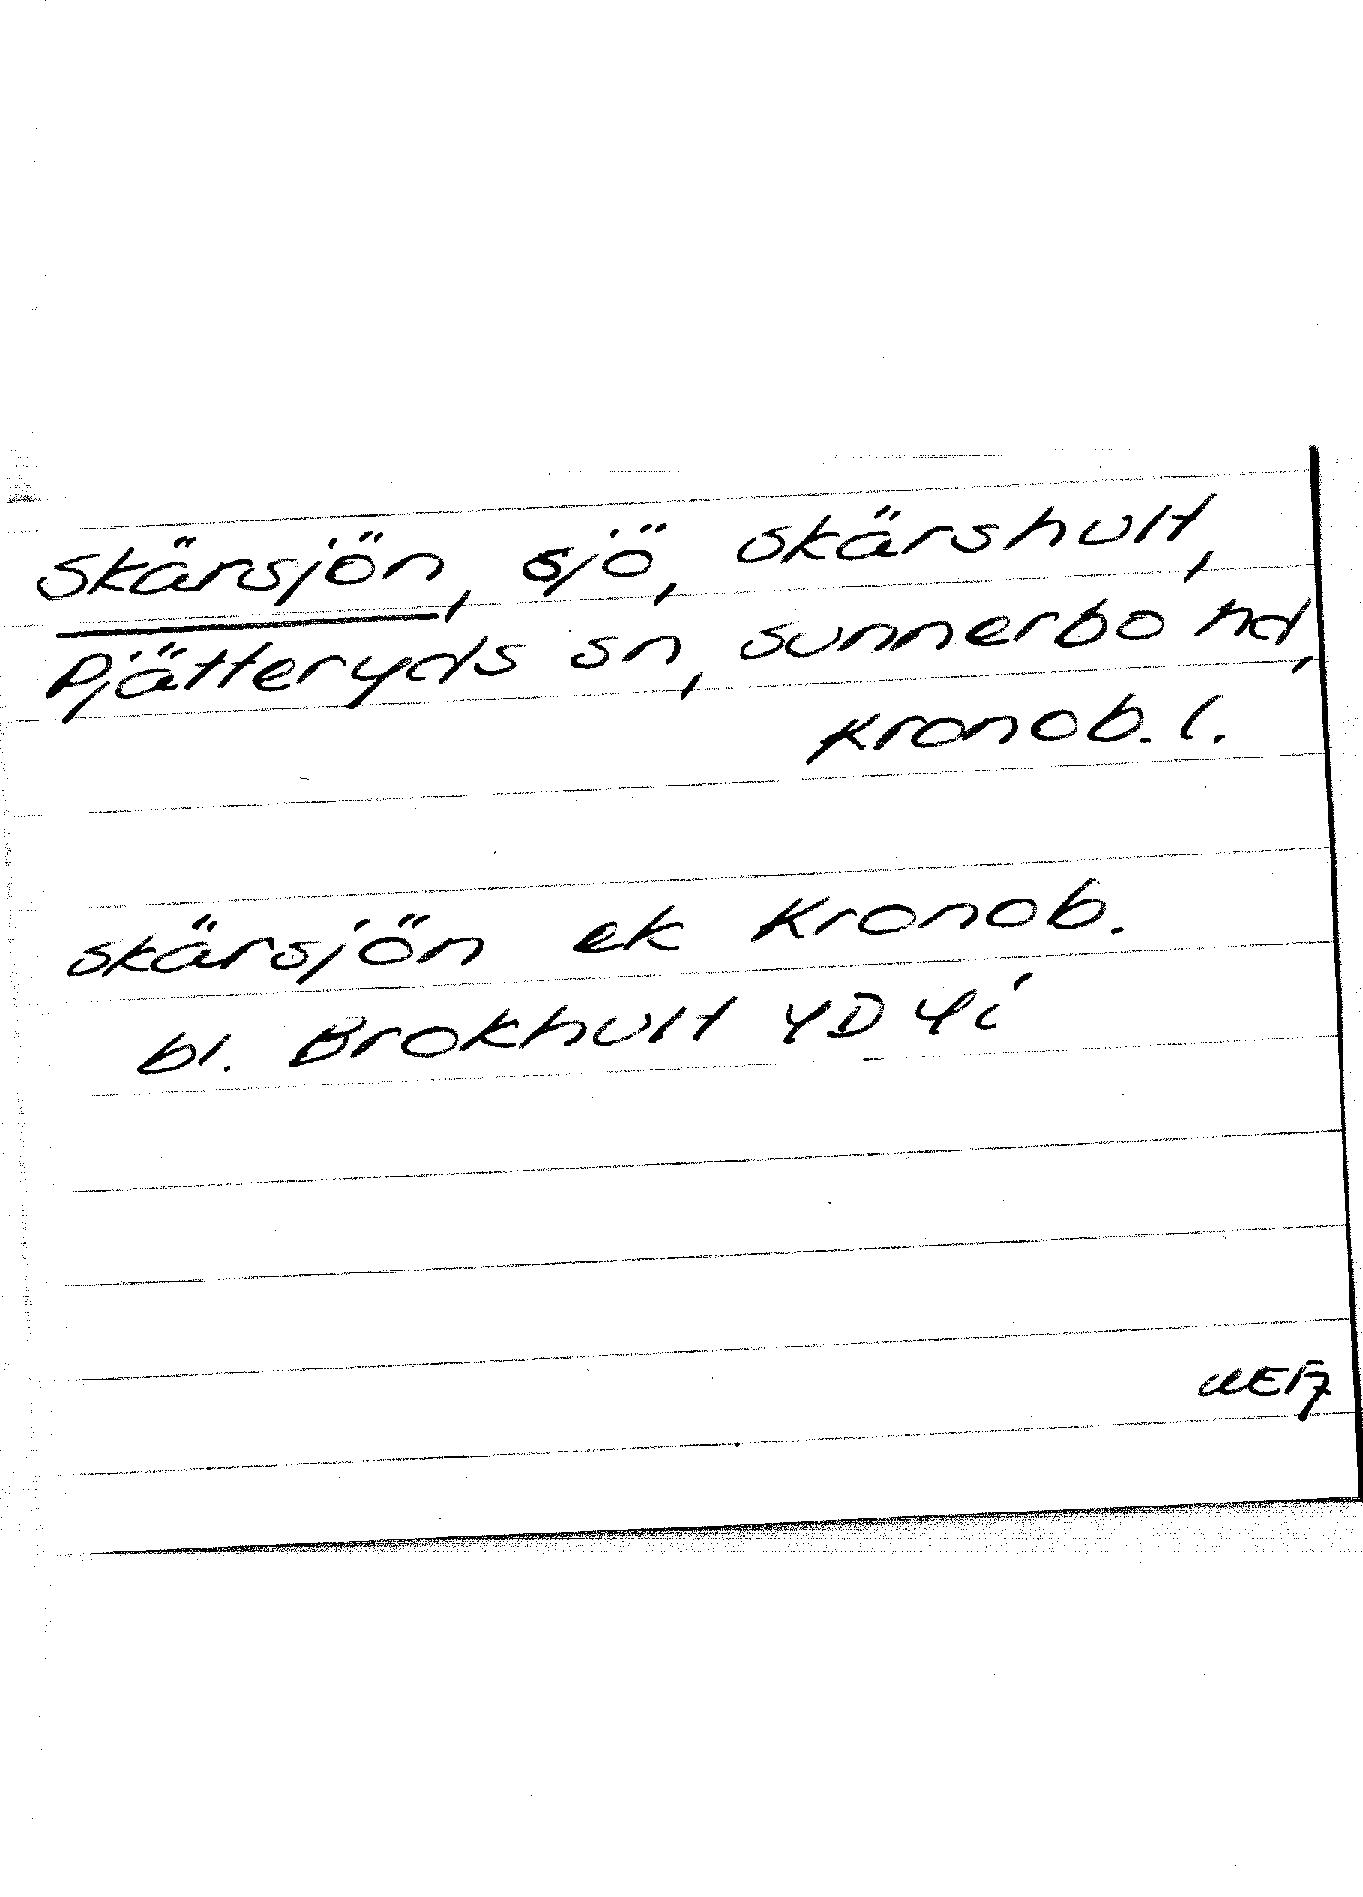 Skärsjön, sjö, Skärshult,
Pjätteryds sn, Sunnerbo hd,
Kronob. l.
Skärsjön ek Kronob.
bl. Brokhult 4D 4i